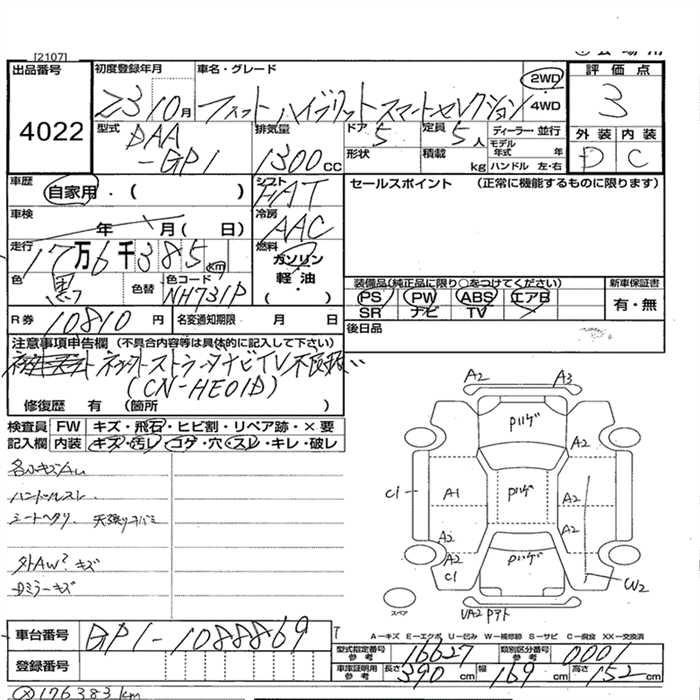 [2107]
出品番号
4022
初度登録年月
23 10月
車名・グレード
フィット ハイブリット スマートセレクション
2WD
4WD
評価点
3
外装 内装
D C
型式
DAA
-GP1
排気量
1300 CC
ドア 5
形状
定員 5人
積載 kg
ディーラー・並行
モデル年式 年
ハンドル 左・右
車歴
自家用・( )
シフト
FAT
車検
年 月( 日)
冷房
AAC
走行
17万6千385km
燃料
ガソリン
軽・油
( )
色
黒
色替
色コード
NH731P
R券 10810円
名変通知期限 月 日
セールスポイント (正常に機能するものに限ります)
装備品(純正品に限り○をつけてください)
新車保証書
PS PW ABS エアB
SR ナビ TV
有・無
後日品
注意事項申告欄 (不具合内容等は具体的に記入して下さい)
ナビTV不良
(CN-HE01D)
修復歴 有 (箇所 )
検査員記入欄
FW キズ・飛石・ヒビ割・リペア跡・×要
内装 キズ・汚レ・コゲ・穴・スレ・キレ・破レ
各小キズAu
ハンドルスレ
シートヘタリ 天張リ
外AW? キズ
ミラーキズ
A2 A3
Pハゲ
A2
C1 A1 Pハゲ A2
A2
A2
C1 Pハゲ
W2
スペア
UA2 Pアト
A-キズ E-エクボ U-凹み W-補修跡 S-サビ C-腐食 XX-交換済
車台番号 GP1-1088869
登録番号
型式指定番号 参考 16627
類別区分番号 参考 0001
車庫証明用 参考 長さ 390cm 幅 169cm 高さ 152cm
176383km